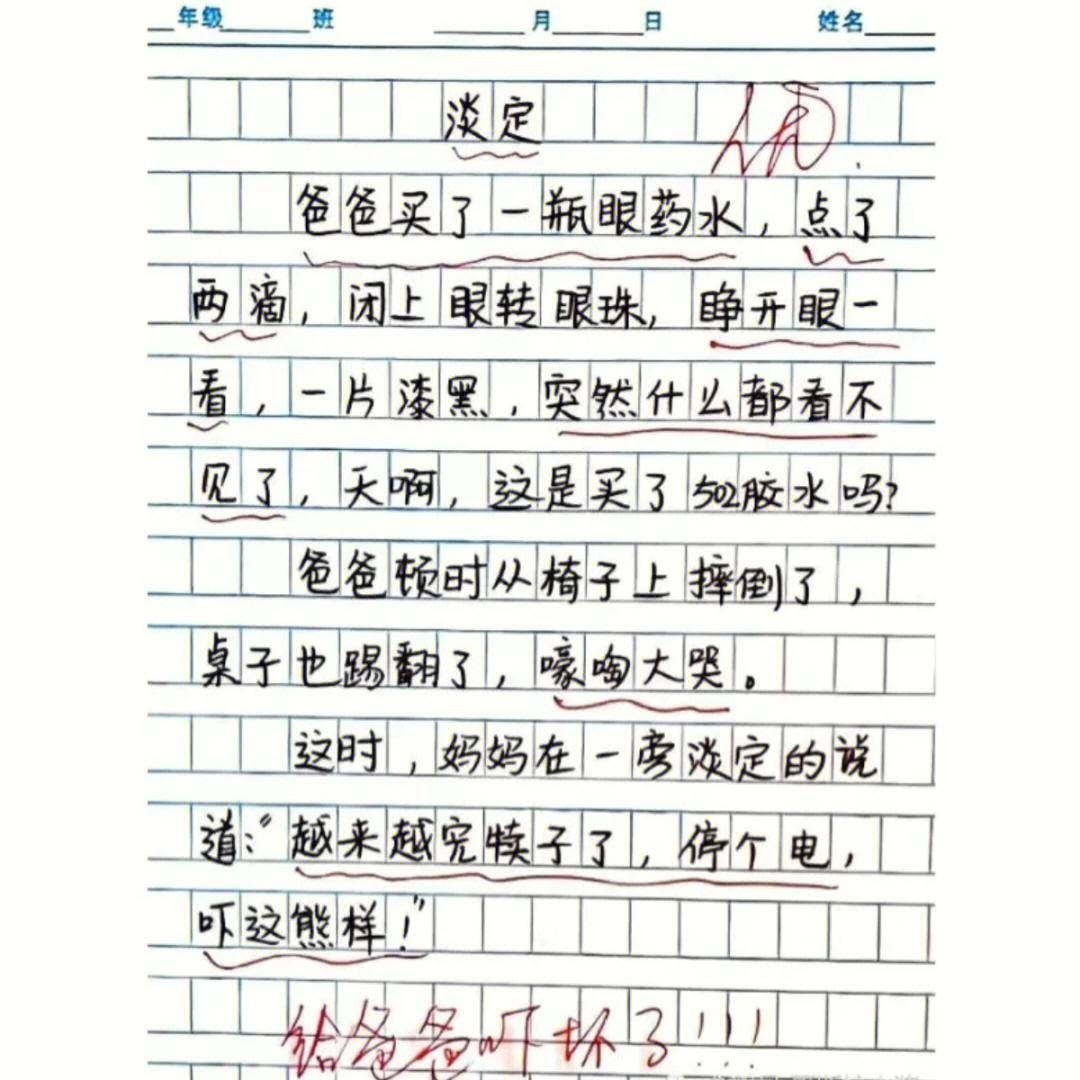 年级 班 月 日 姓名
淡定 优
爸爸买了一瓶眼药水,点了
两滴,闭上眼转眼珠,睁开眼一
看,一片漆黑,突然什么都看不
见了,天啊,这是买了502胶水吗?
爸爸顿时从椅子上摔倒了,
桌子也踢翻了,嚎啕大哭。
这时,妈妈在一旁淡定的说
道:“越来越完犊子了,停个电,
吓这熊样!”
给爸爸吓坏了!!!